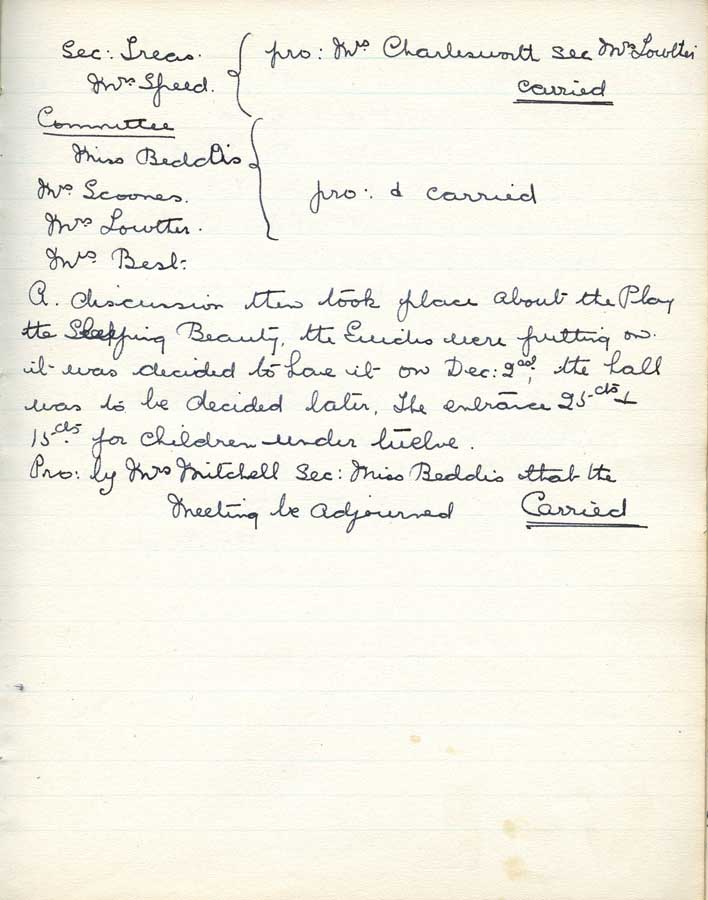 Sec: Treas. pro: Mrs Charlesworth sec Mrs Lowther
Mrs Speed. Carried
Committee
Miss Beddis
Mrs Scoones. pro: & carried
Mrs Lowther.
Mrs Best:
A. discussion then took place about the Play
the Sleeping Beauty, the Guides were putting on.
it was decided to have it on Dec: 2nd, the hall
was to be decided later, The entrance 25cts &
15cts for children under twelve.
Pro: by Mrs Mitchell Sec: Miss Beddis that the
Meeting be adjourned Carried